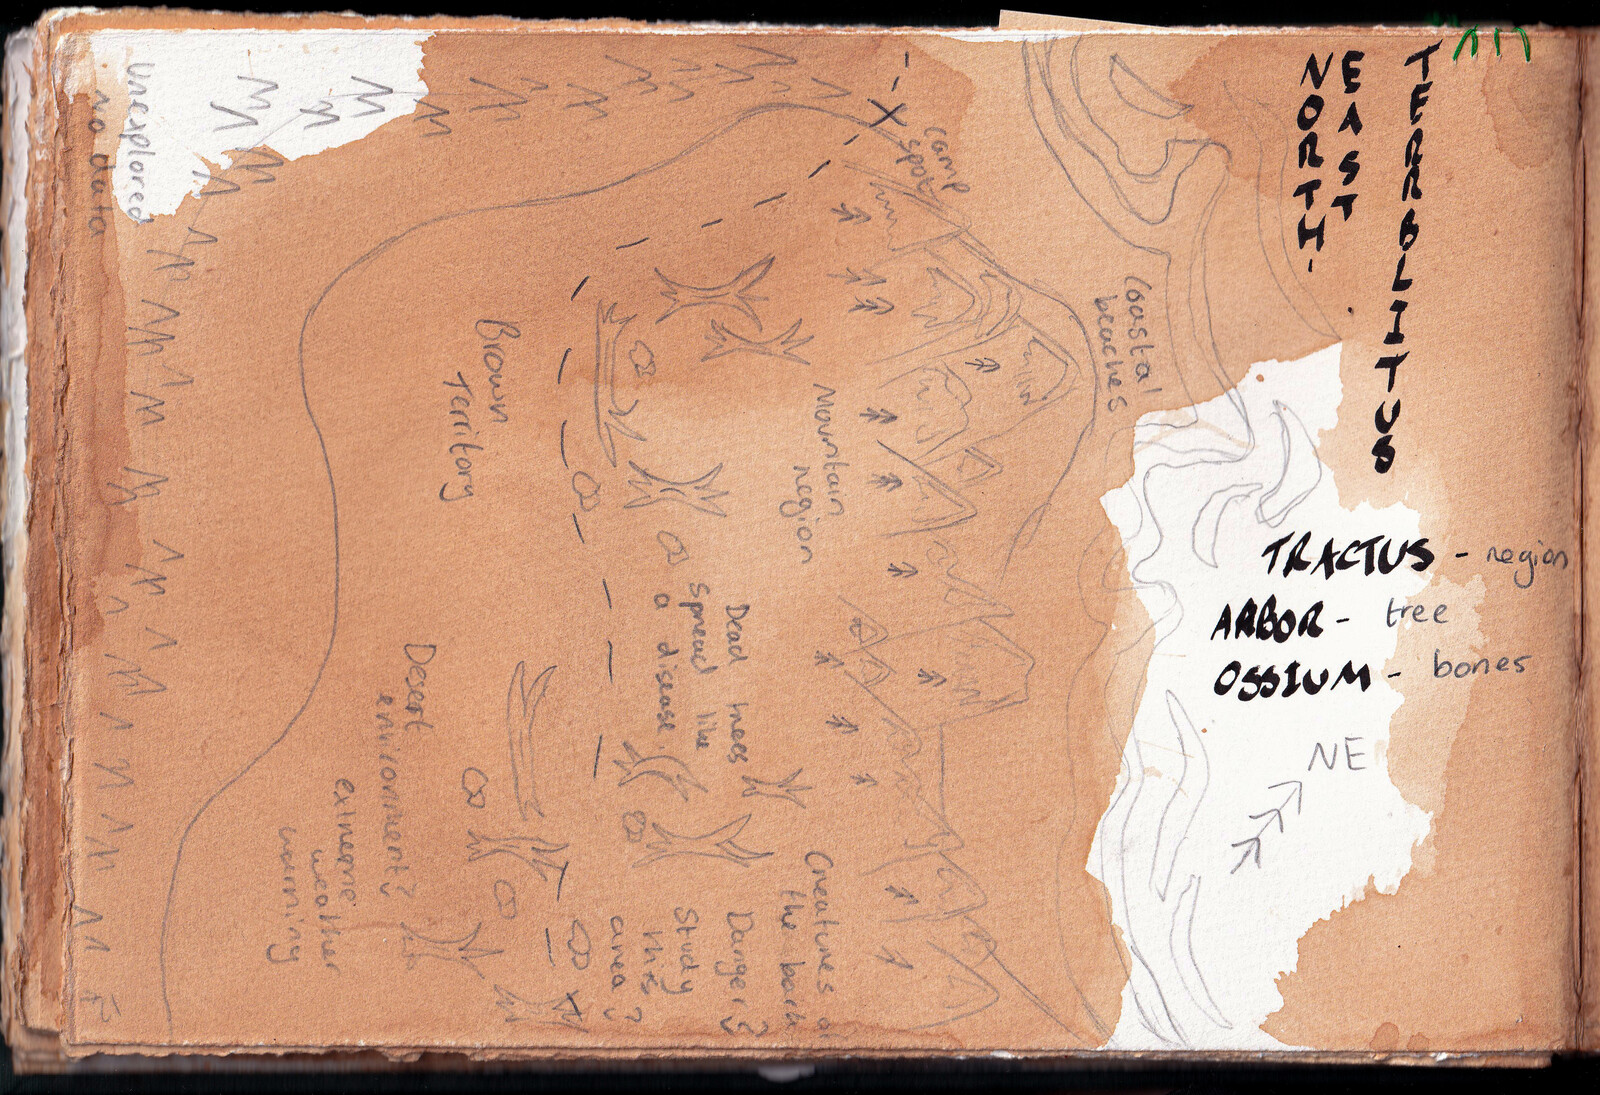 TERRBLITUS
NORTH-
EAST
TRACTUS - region
ARBOR - tree
OSSIUM - bones
NE
camp
spot
Coastal
beaches
Mountain
region
Dead trees
spread like
a disease.
Creatures of
the bark
Danger?
Study
this
area?
Brown
Territory
Desert
environment?
extreme
weather
warning
Unexplored
no data